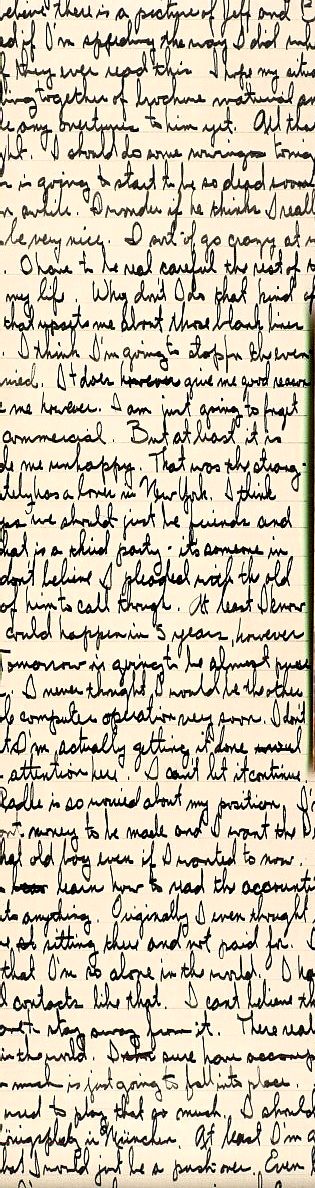 believe there is a picture of Jeff and
ed if I'm spending the way I did
f they ever read this I hope my
together of brochure material
le any overtures to him yet. All tha
ght. I should do some tonig
n is going to start to be so dead
r awhile. I wonder if he thinks I reall
be very nice. I sort of go crazy at
. I have to be real careful the rest of
my life. Why don't I do that kind of
that upsets me about those blank lines
. I think I'm going to stop for the even
ried. It does however give me good reason
e me however. I am just going to forget
commercial. But at least it is
de me unhappy. That was the strang-
tely has a lover in New York. I think
ps we should just be friends and
that is a third party - its someone in
don't believe I pleaded with the old
of him to call though. At least I know
could happen in 5 years, however
Tomorrow is going to be almost pure
. I never thought I would be the other
computer operation very soon. I don't
t I'm actually getting it done
attention here. I can't let it continue.
is so worried about my position. I'
on't money to be made and I want the
hat old boy even if I wanted to now.
learn how to read the accounti
into anything. Originally I even thought
sitting there and not paid for. I
that I'm so alone in the world. I ha
d contacts like that. I cant believe th
stay away from it. There real
in the world. I sure have accomp
much is just going to fall into place.
need to play that so much. I should
Königsplatz in München. At least I'm a
hat I would just be a pushover. Even